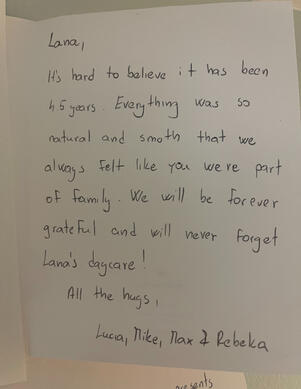 Lana,
It's hard to believe it has been
4.5 years. Everything was so
natural and smoth that we
always felt like you were part
of family. We will be forever
grateful and will never forget
Lana's daycare!
All the hugs,
Lucia, Mike, Max & Rebeka
presents